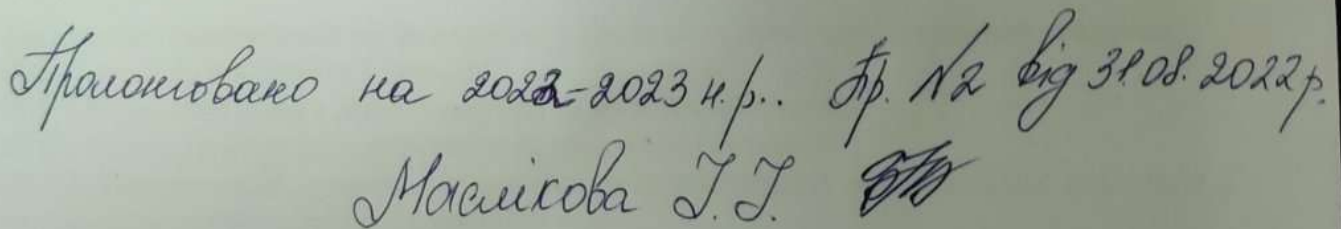 Пролонговано на 2022-2023 н.р.. Пр. №2 від 31.08.2022р.
Маслікова І.І.